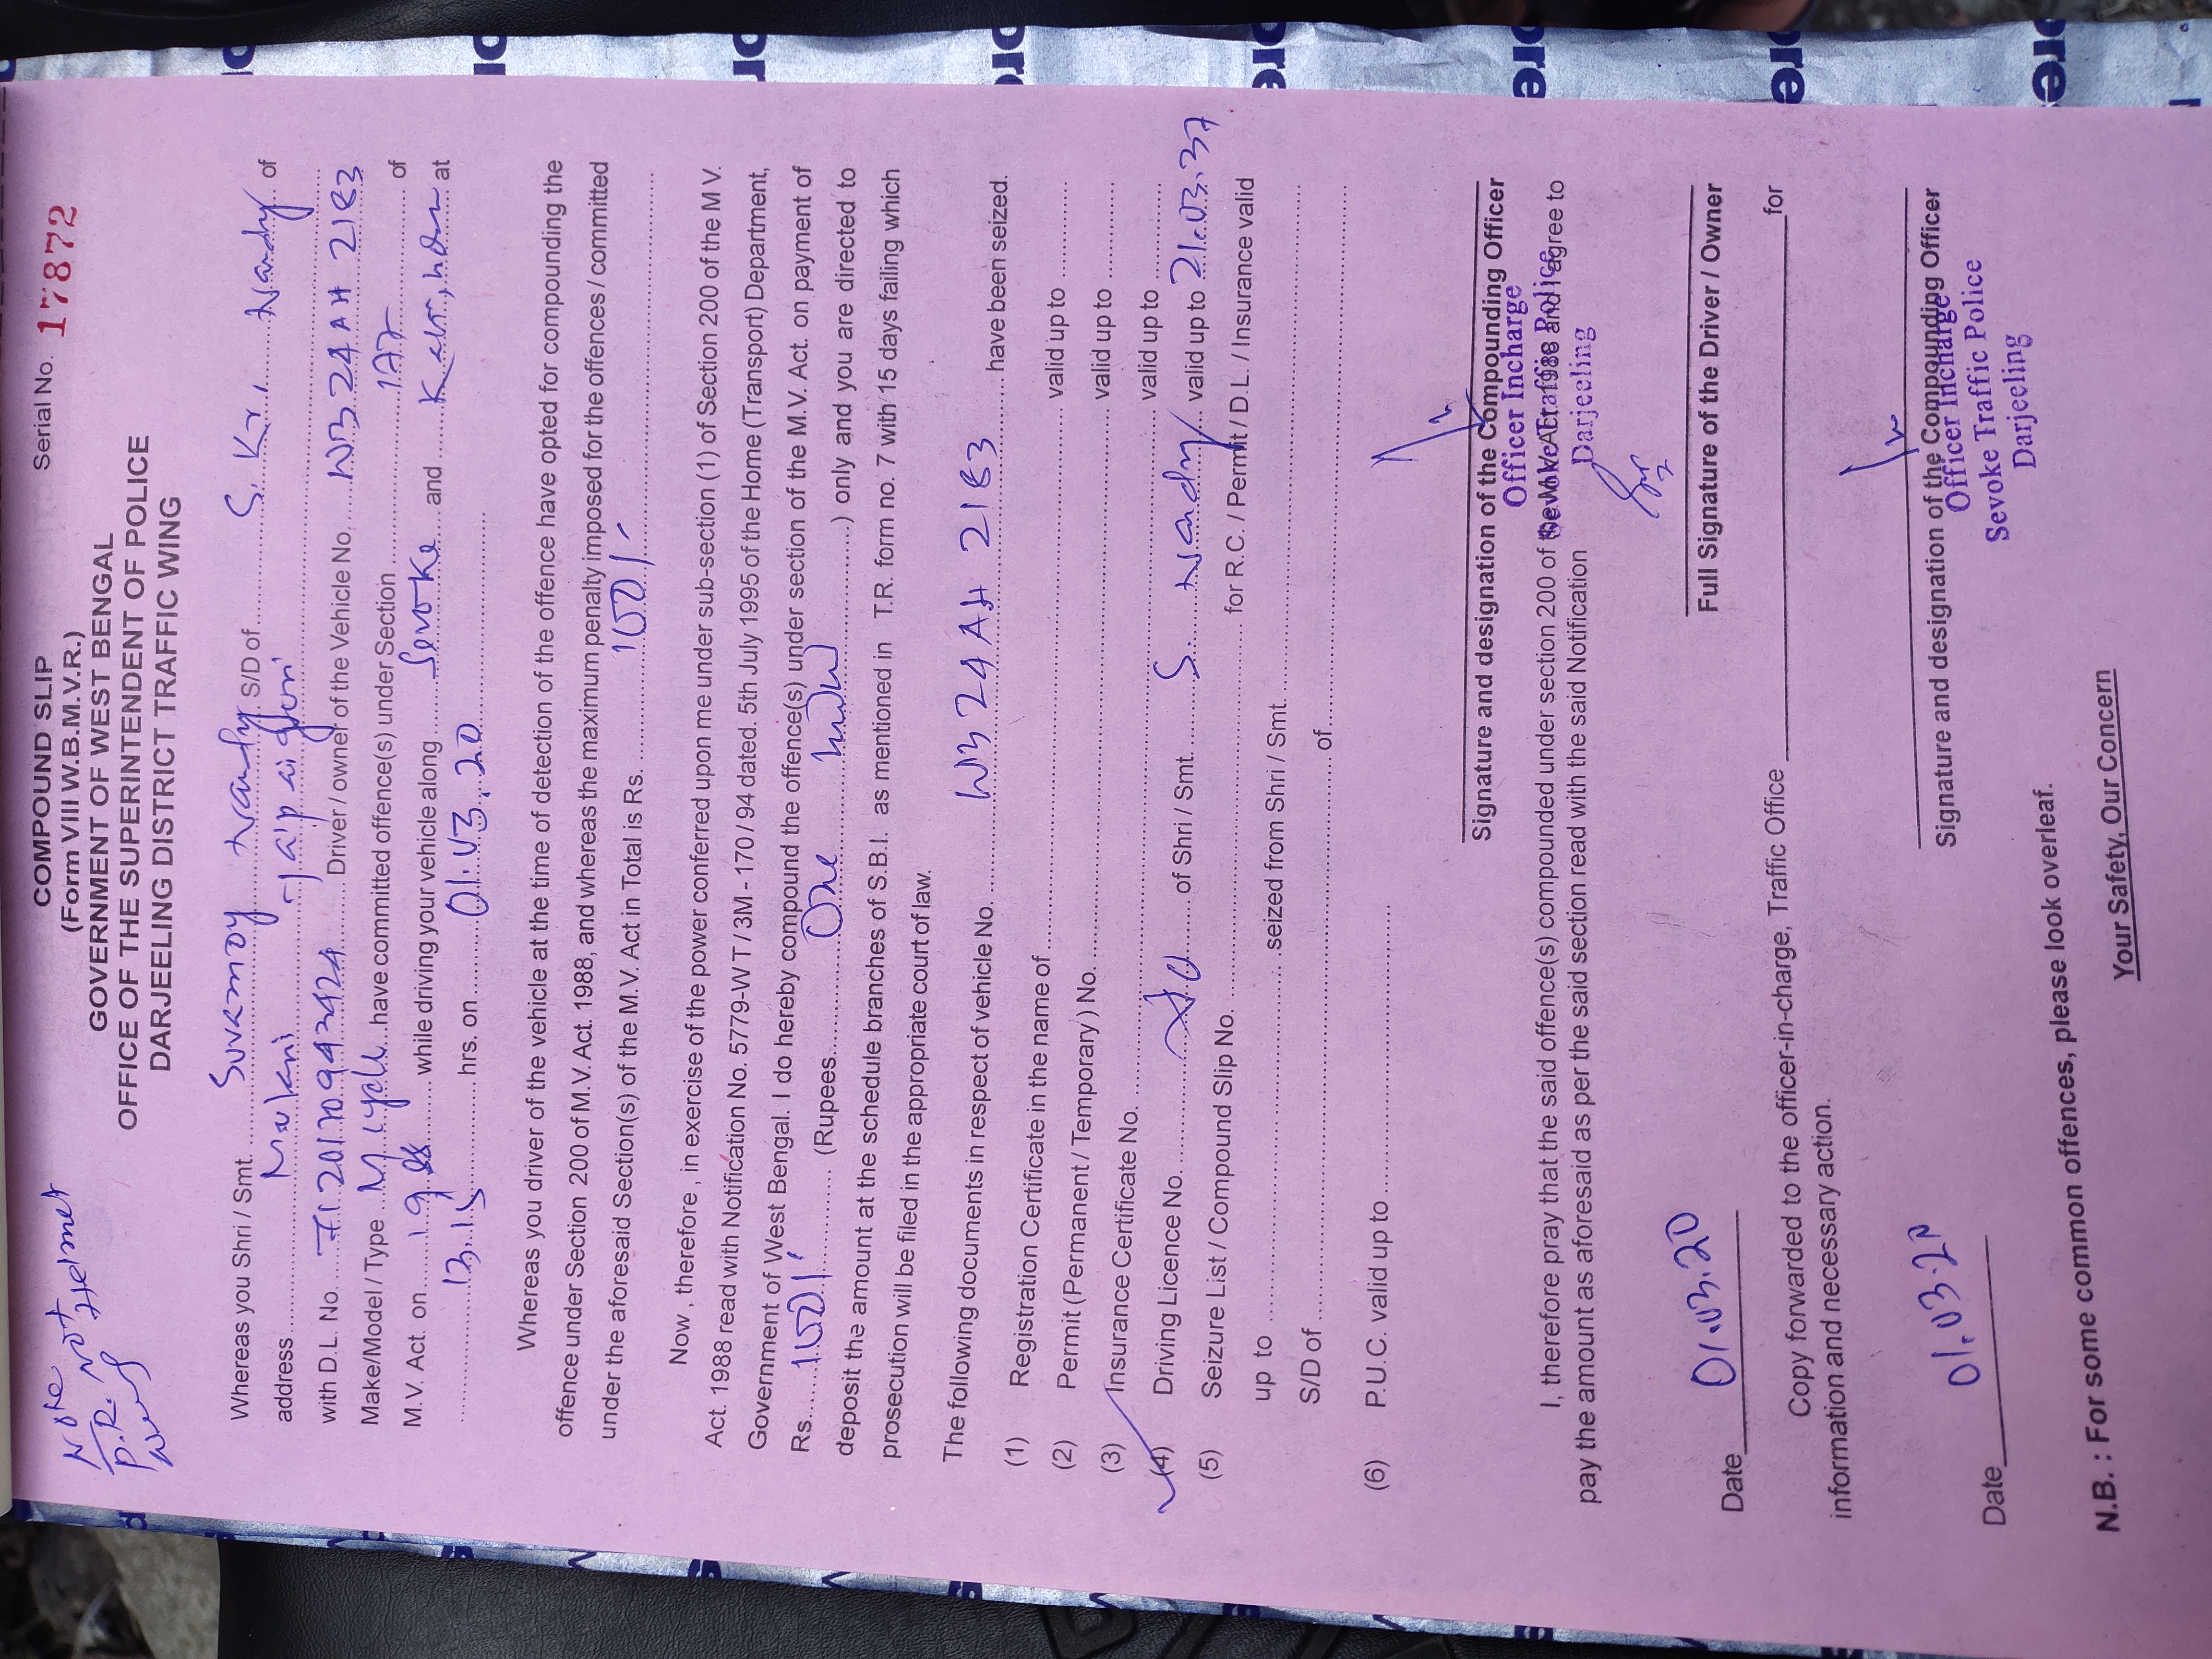 COMPOUND SLIP
Serial No. 17872
(Form VIII W.B.M.V.R.)
GOVERNMENT OF WEST BENGAL
OFFICE OF THE SUPERINTENDENT OF POLICE
DARJEELING DISTRICT TRAFFIC WING
Note
P.R. not
Helmet
Whereas you Shri / Smt. Suvamoy Nandy S/D of S. Kr. Nandy of
address
with D.L. No. Driver / owner of the Vehicle No. WB 24 AH 2183
Make/Model / Type M. cycle have committed offence(s) under Section 177 of
M.V. Act. on while driving your vehicle along Sevoke and at
13.15 hrs. on 01.03.20
Whereas you driver of the vehicle at the time of detection of the offence have opted for compounding the
offence under Section 200 of M.V. Act. 1988, and whereas the maximum penalty imposed for the offences / committed
under the aforesaid Section(s) of the M.V. Act in Total is Rs. 100/-
Now , therefore , in exercise of the power conferred upon me under sub-section (1) of Section 200 of the M V.
Act. 1988 read with Notification No. 5779-W T / 3M - 170 / 94 dated. 5th July 1995 of the Home (Transport) Department,
Government of West Bengal. I do hereby compound the offence(s) under section of the M.V. Act. on payment of
Rs. 100/- (Rupees One ) only and you are directed to
deposit the amount at the schedule branches of S.B.I. as mentioned in T.R. form no. 7 with 15 days failing which
prosecution will be filed in the appropriate court of law.
The following documents in respect of vehicle No. WB 24 AH 2183 have been seized.
(1) Registration Certificate in the name of valid up to
(2) Permit (Permanent / Temporary) No. valid up to
(3) Insurance Certificate No. valid up to
(4) Driving Licence No. of Shri / Smt. S. Nandy valid up to 21.03.37
(5) Seizure List / Compound Slip No. for R.C. / Permit / D.L. / Insurance valid
up to seized from Shri / Smt.
S/D of of
(6) P.U.C. valid up to
Signature and designation of the Compounding Officer
Officer Incharge
Sevoke Traffic Police
Darjeeling
I, therefore pray that the said offence(s) compounded under section 200 of the M.V. Act 1988 and agree to
pay the amount as aforesaid as per the said section read with the said Notification
Full Signature of the Driver / Owner
Date 01.03.20
Copy forwarded to the officer-in-charge, Traffic Office for
information and necessary action.
Signature and designation of the Compounding Officer
Officer Incharge
Sevoke Traffic Police
Darjeeling
Date 01.03.20
N.B. : For some common offences, please look overleaf.
Your Safety, Our Concern